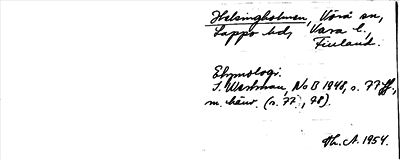 Helsingholmen, Vörå sn,
Lappo hd, Vasa l.,
Finland.
Etymologi.
T. Westman, NoB 1948, s. 77 ff.,
m. hänv. (s. 77, 78).
Vh. A. 1954.